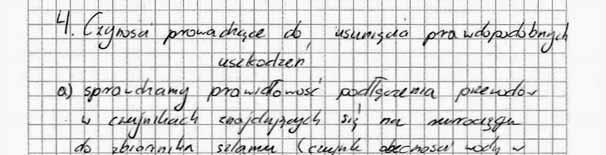 4. Czynności prowadzące do usunięcia prawdopodobnych
uszkodzeń
a) sprawdzamy prawidłowość podłączenia przewodów
w czujnikach znajdujących się na rurociągu
do zbiornika szlamu (czujnik obecności wody w